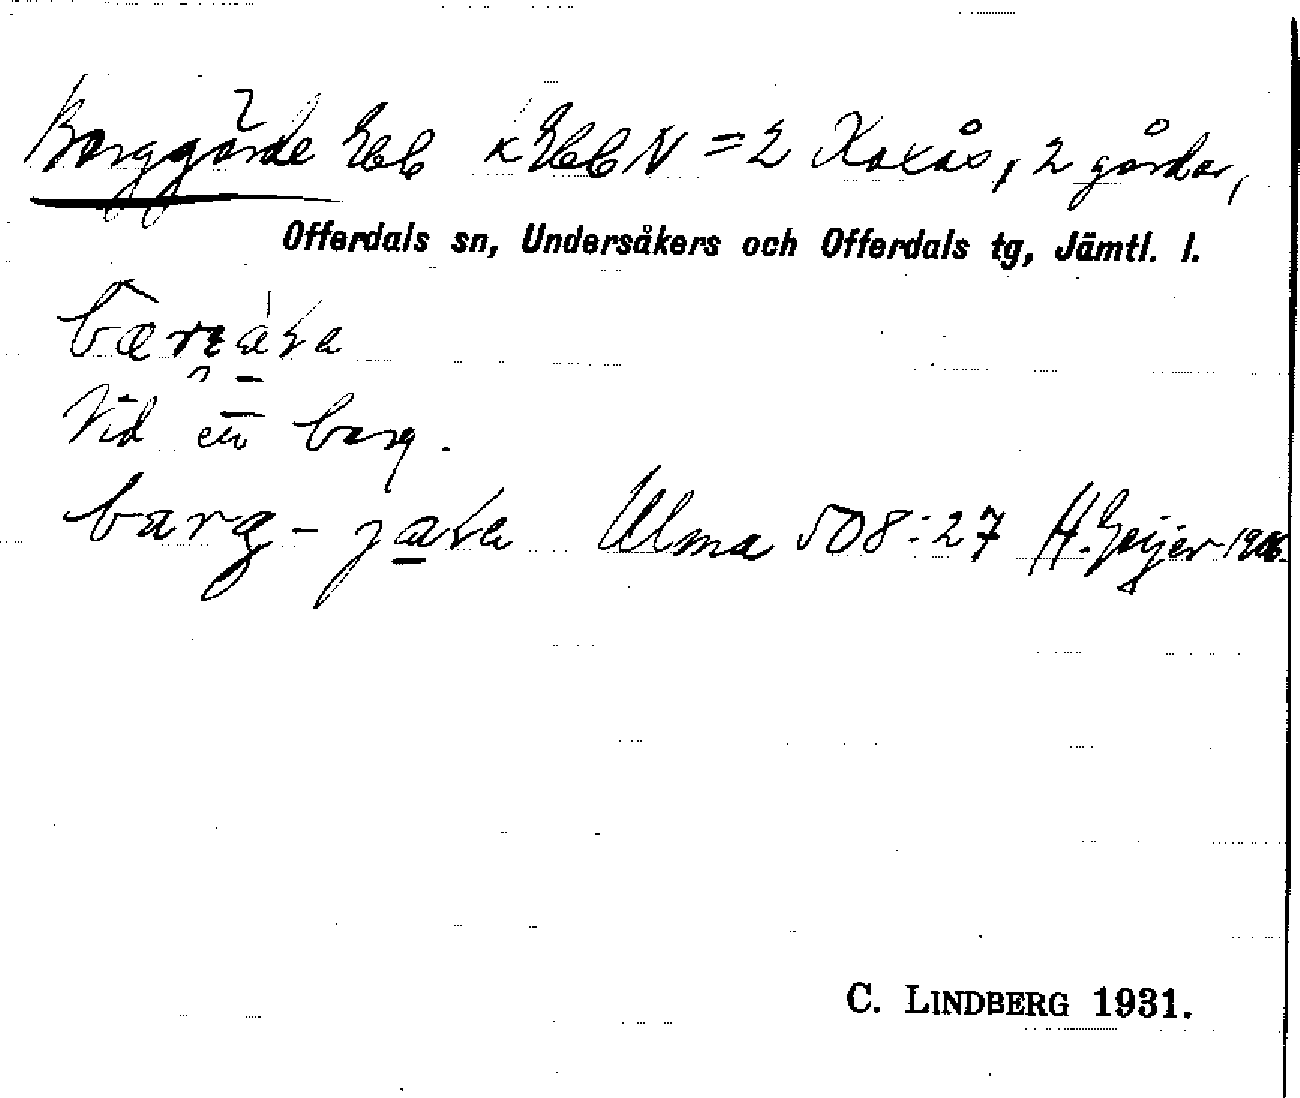 Borggärde Ebb kEbb N = 2 Kaxås, 2 gårdar,
Offerdals sn, Undersåkers och Offerdals tg, Jämtl. l.
Vid en barg.
barg - jaka Ulma 508:27 H. Geijer 1906.
C. LINDBERG 1931.